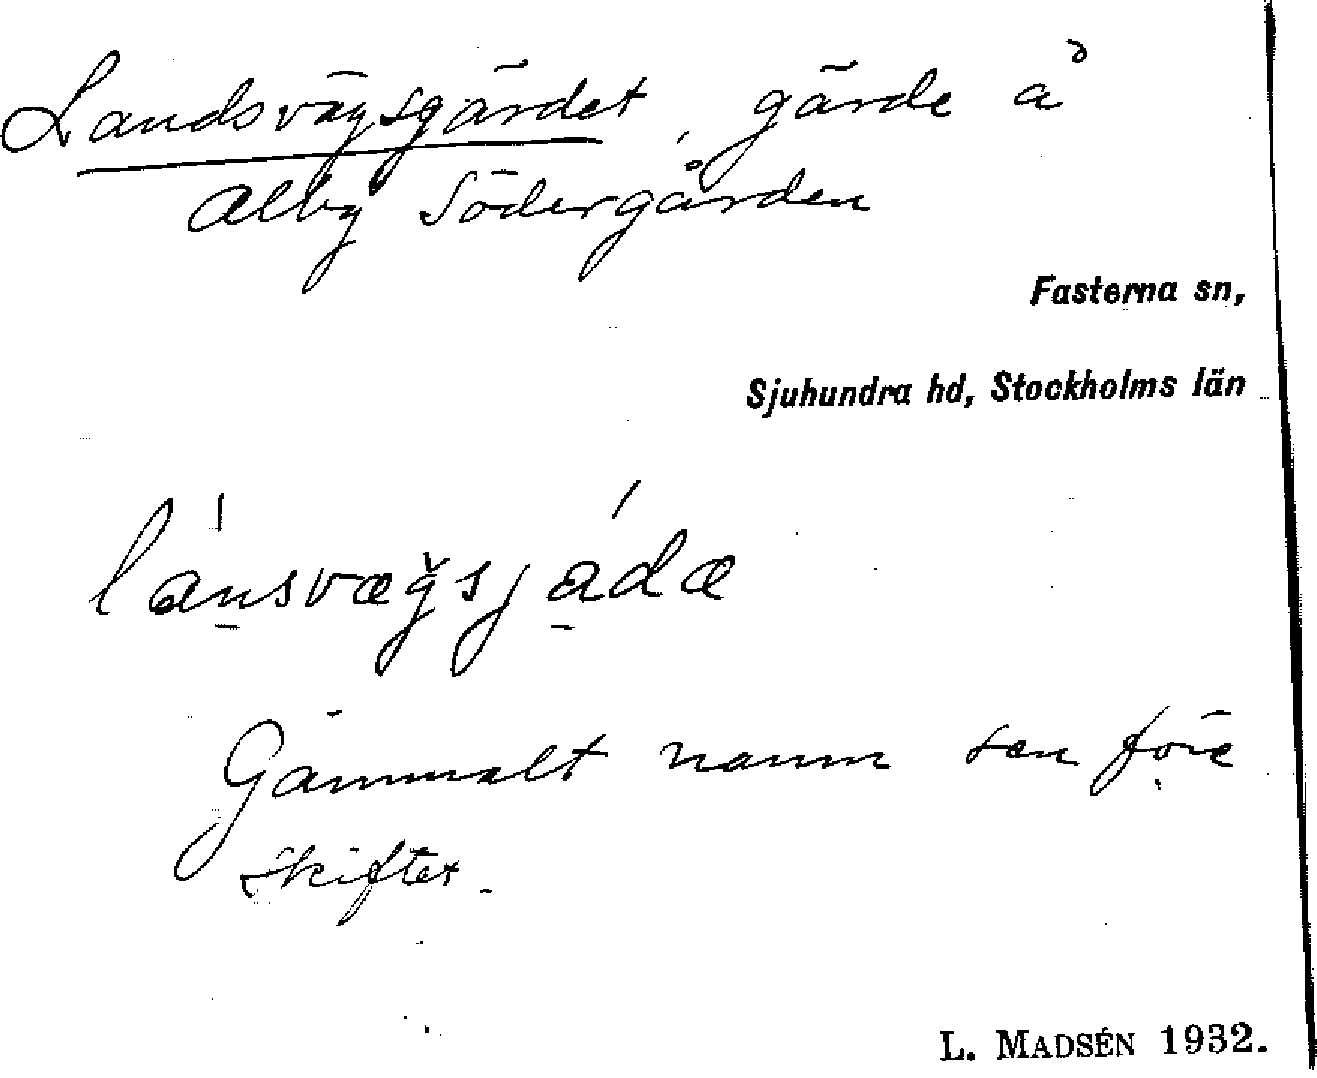 Landsvägsgärdet, gärde å
Alby Södergården
Fasterna sn,
Sjuhundra hd, Stockholms län
lánsvægsjádæ
Gammalt namn sen före
skiftet.
L. MADSÉN 1932.